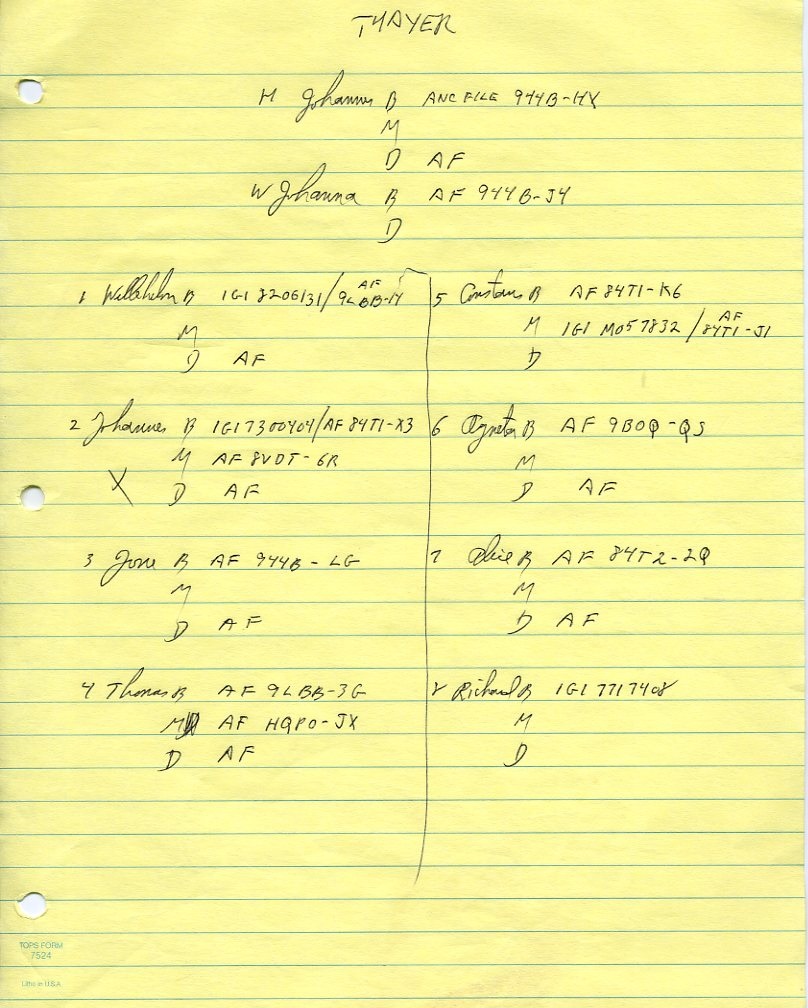 THAYER
H Johannes B ANC FILE 944B-HX
M
D AF
W Johanna B AF 944B-J4
D
1 Willihelm B IGI 8206131/AF 9LBB-H
M
D AF
2 Johannes B IGI 7300404/AF 84T1-X3
M AF 8VDT-6R
X D AF
3 Jone B AF 944B-LG
M
D AF
4 Thomas B AF 9LBB-3G
M AF HQP0-JX
D AF
5 Constans B AF 84T1-K6
M IGI M057832 / AF 84T1-J1
D
6 Agneta B AF 9B0Q-QS
M
D AF
7 Alice B AF 84T2-2Q
M
D AF
8 Richard B IGI 7717408
M
D
TOPS FORM
7524
Litho in U.S.A